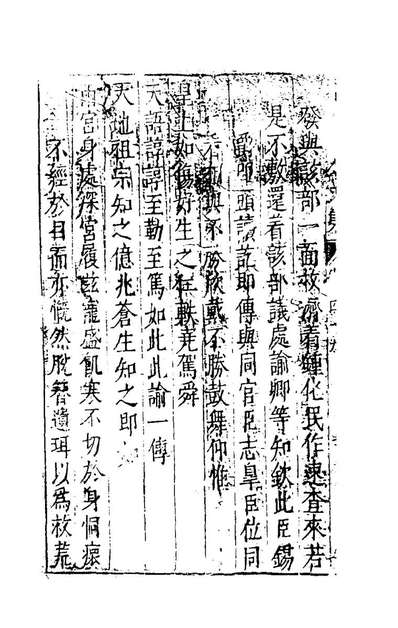 發與該部一面救濟着鍾化民作速查來若
是不敷還着該部議處諭卿等知欽此臣錫
爵叩頭讀訖即傳與同官臣志臯臣位同
不勝欣戴不勝鼓舞仰惟
皇上如傷好生之軫軼堯駕舜
天語諄諄至勤至篤如此此諭一傳
天地祖宗知之億兆蒼生知之即
中宮身處深宮履茲隆盛飢寒不切於身恫瘝
不經於目而亦慨然脫簪遺珥以為救荒